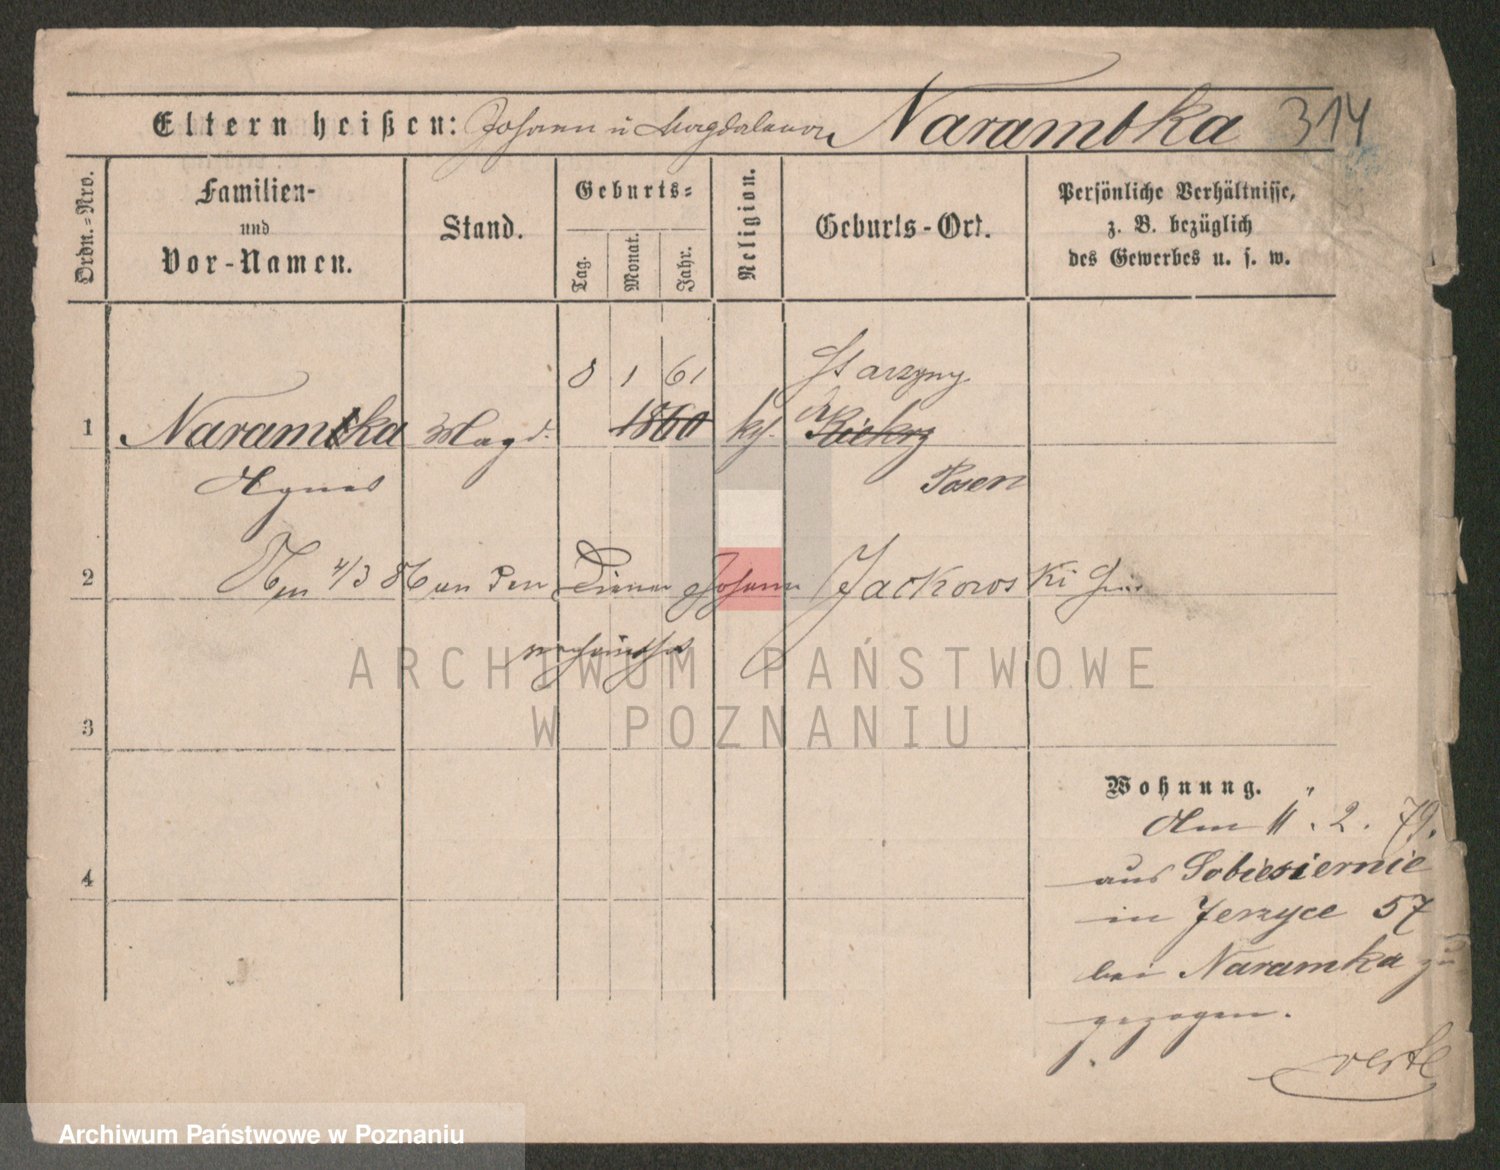 Eltern heißen: Johann u Magdalena Narambka 314
Ordn.=Nro.
Familien-
und
Vor-Namen.
Stand.
Geburts=
Tag.
Monat.
Jahr.
Religion.
Geburts-Ort.
Persönliche Verhältnisse,
z. B. bezüglich
des Gewerbes u. s. w.
8 1 61 Starzyny
1 Naramka Magd. 1860 kth. Kr Kiekrz
Agnes Posen
2 Am 4/3 86 an den Diener Johann Jackowski
3
ARCHIWUM PAŃSTWOWE
W POZNANIU
Wohnung.
Am 11. 2. 79.
4 aus Sobiesiernie
in Jerzyce 57
bei Naramka zu
gezogen.
Archiwum Państwowe w Poznaniu